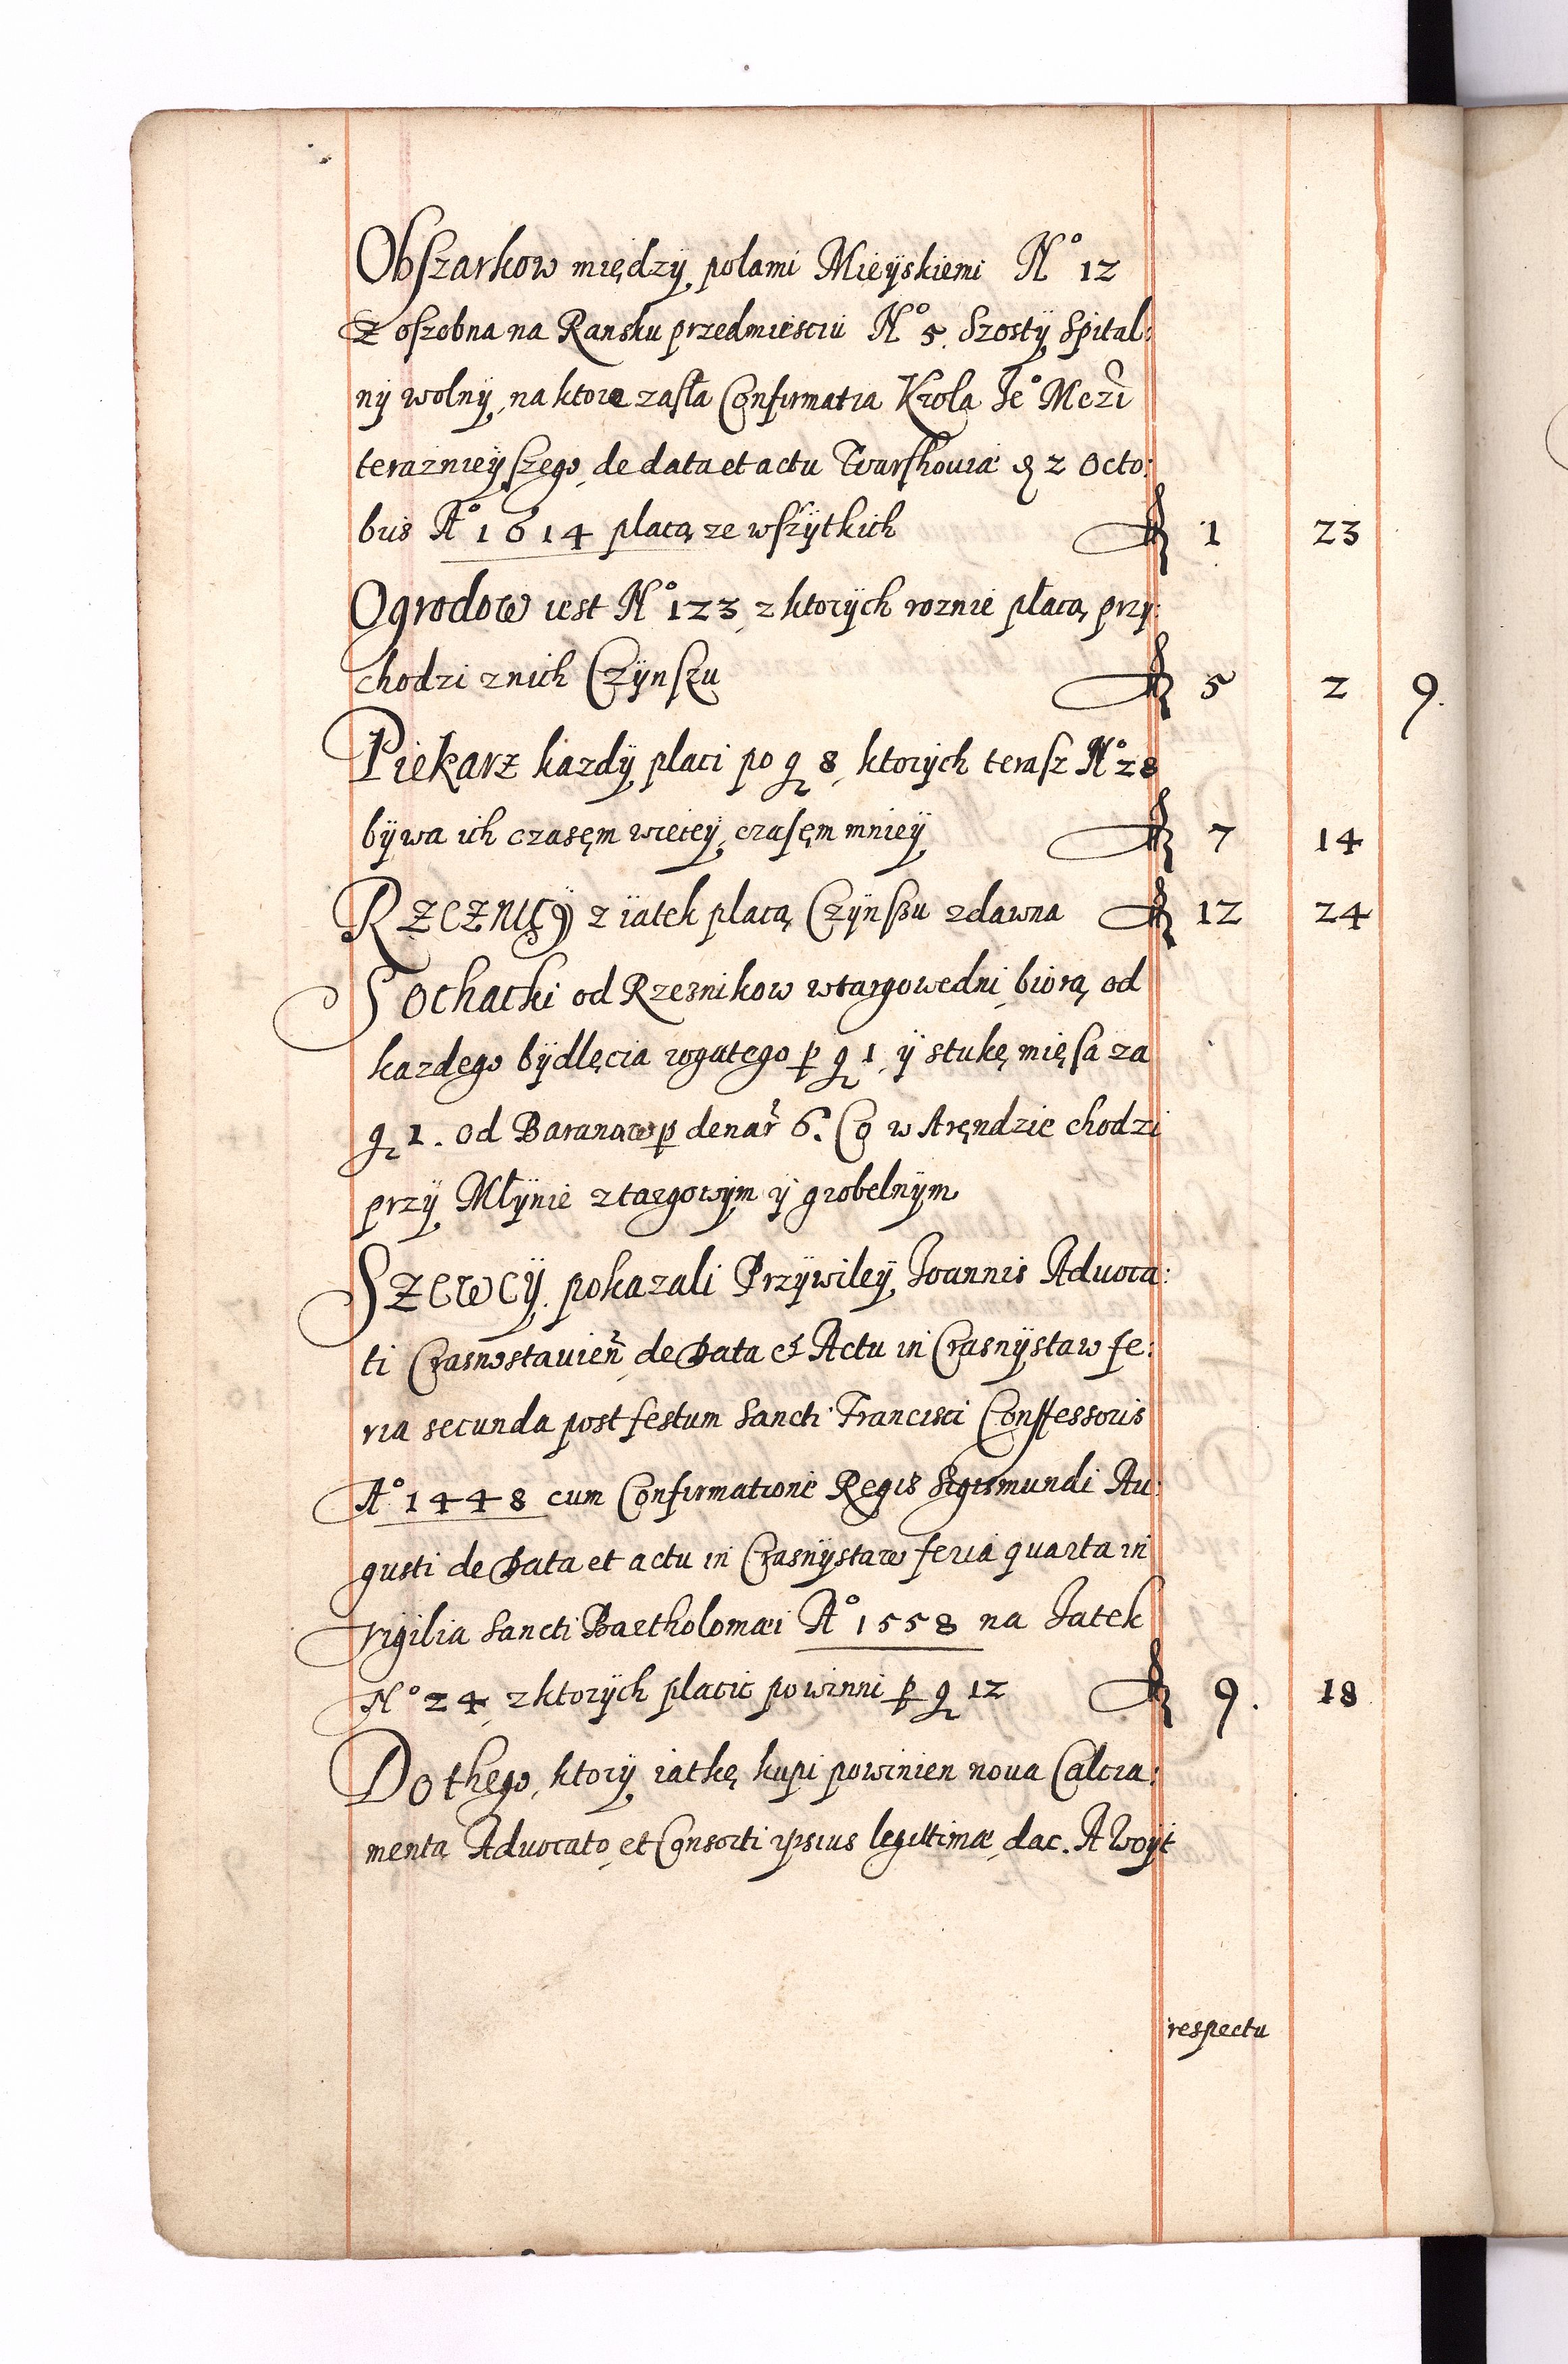 Obszarkow między polami Mieyskiemi No 12
Z oszobna na Ransku przedmiesciu No 5. Szosty Spital:
ny wolny, na ktore zasła Confirmatia Krola Je° Mczi
teraznieyszego, de data et actu Warshouiæ 2 Octo:
bus A° 1614 placą ze wszytkich 1 23
Ogrodow iest No 123, z ktorych roznie płacą, przy:
chodzi z nich Czynszu 5 2 9.
Piekarz kazdy placi po g 8, ktorych terasz No 28
bywa ich czasęm wiecey, czasęm mniey 7 14
Rzeznicy z iatek placą Czynszu zdawna 12 24
Sochacki od Rzeznikow w targowe dni, biorą od
kazdego bydlęcia rogatego p g 1, y stukę mięsa za
g 1. od Baranow p denar 6. Co w Aręndzie chodzi
przy Młynie z targowym y grobelnym
Szewcy pokazali Przywiley Joannis Aduoca:
ti Crasnostauien, de Data et Actu in Crasnystaw fe:
ria secunda post festum Sancti Francisci Confessoris
A° 1448 cum Confirmatione Regis Sigismundi Au:
gusti de Data et actu in Crasnystaw feria quarta in
vigilia Sancti Bartholomæi A° 1558 na Jatek
No 24, z ktorych placic powinni p g 12 9. 18
Do thego, ktory iatkę kupi powinien noua Calcia:
menta Aduocato, et Consorti ipsius legittimæ, dac. A Woyt
respectu